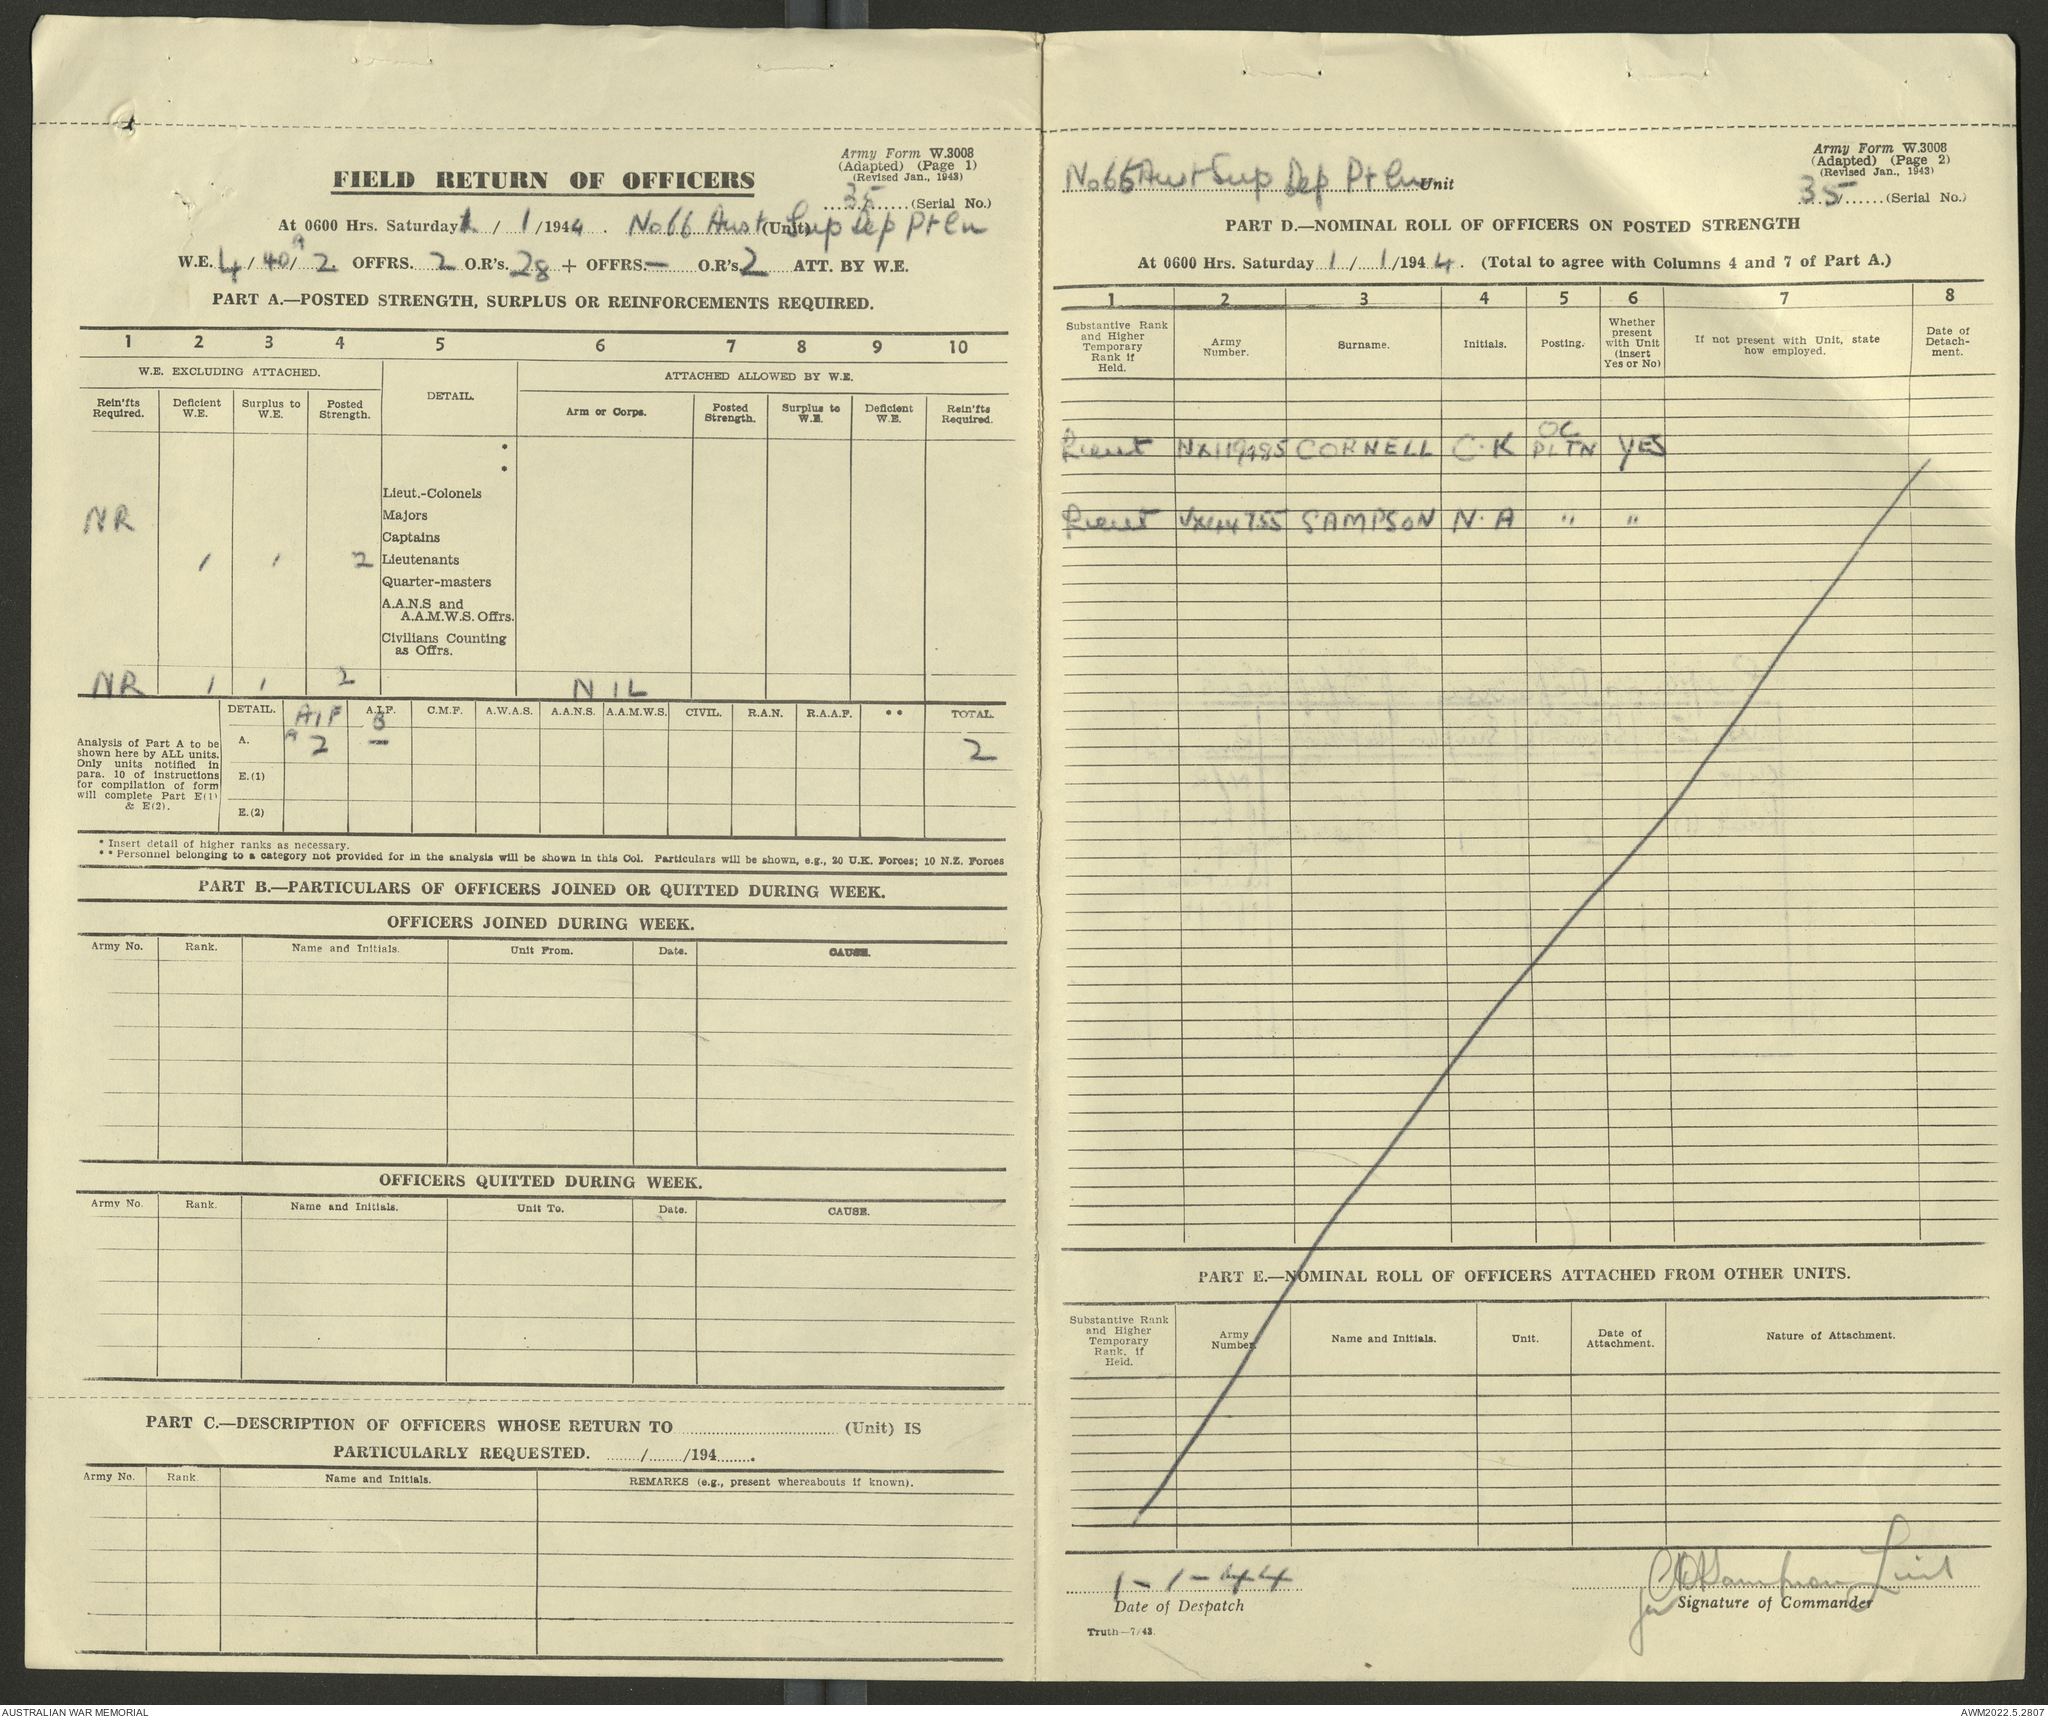 Army Form W.3008
(Adapted) (Page 1)
(Revised Jan., 1943)
FIELD RETURN OF OFFICERS
35 (Serial No.)
At 0600 Hrs. Saturday 1 / 1 /1944. No 66 Aust Sup Dep Pltn (Unit)
W.E. 4 / 40A / 2. OFFRS. 2 O.R's. 28 + OFFRS. — O.R's 2 ATT. BY W.E.
PART A.—POSTED STRENGTH, SURPLUS OR REINFORCEMENTS REQUIRED.
1 2 3 4 5 6 7 8 9 10
W.E. EXCLUDING ATTACHED. DETAIL. ATTACHED ALLOWED BY W.E.
Rein'fts Required. Deficient W.E. Surplus to W.E. Posted Strength. Arm or Corps. Posted Strength. Surplus to W.E. Deficient W.E. Rein'fts Required.
*
*
Lieut.-Colonels
NR Majors
Captains
1 1 2 Lieutenants
Quarter-masters
A.A.N.S and
A.A.M.W.S. Offrs.
Civilians Counting
as Offrs.
NR 1 1 2 NIL
DETAIL. AIF A A.I.F. B C.M.F. A.W.A.S. A.A.N.S. A.A.M.W.S. CIVIL. R.A.N. R.A.A.F. ** TOTAL.
A. 2 — 2
E.(1)
E.(2)
Analysis of Part A to be
shown here by ALL units.
Only units notified in
para. 10 of instructions
for compilation of form
will complete Part E(1)
& E(2).
* Insert detail of higher ranks as necessary.
** Personnel belonging to a category not provided for in the analysis will be shown in this Col. Particulars will be shown, e.g., 20 U.K. Forces; 10 N.Z. Forces
PART B.—PARTICULARS OF OFFICERS JOINED OR QUITTED DURING WEEK.
OFFICERS JOINED DURING WEEK.
Army No. Rank. Name and Initials. Unit From. Date. CAUSE.
OFFICERS QUITTED DURING WEEK.
Army No. Rank. Name and Initials. Unit To. Date. CAUSE.
PART C.—DESCRIPTION OF OFFICERS WHOSE RETURN TO (Unit) IS
PARTICULARLY REQUESTED. / /194 .
Army No. Rank. Name and Initials. REMARKS (e.g., present whereabouts if known).
Army Form W.3008
(Adapted) (Page 2)
(Revised Jan., 1943)
No 66 Aust Sup Dep Pltn Unit
35 (Serial No.)
PART D.—NOMINAL ROLL OF OFFICERS ON POSTED STRENGTH
At 0600 Hrs. Saturday 1 / 1 /1944. (Total to agree with Columns 4 and 7 of Part A.)
1 2 3 4 5 6 7 8
Substantive Rank and Higher Temporary Rank if Held. Army Number. Surname. Initials. Posting. Whether present with Unit (insert Yes or No) If not present with Unit, state how employed. Date of Detach-ment.
Lieut NX119485 CORNELL C.K OC PLTN YES
Lieut SAMPSON N.A " "
PART E.—NOMINAL ROLL OF OFFICERS ATTACHED FROM OTHER UNITS.
Substantive Rank and Higher Temporary Rank. if Held. Army Number. Name and Initials. Unit. Date of Attachment. Nature of Attachment.
1-1-44 Sampson Lieut
Date of Despatch Signature of Commander
Truth—7/43.
AUSTRALIAN WAR MEMORIAL
AWM2022.5.2807